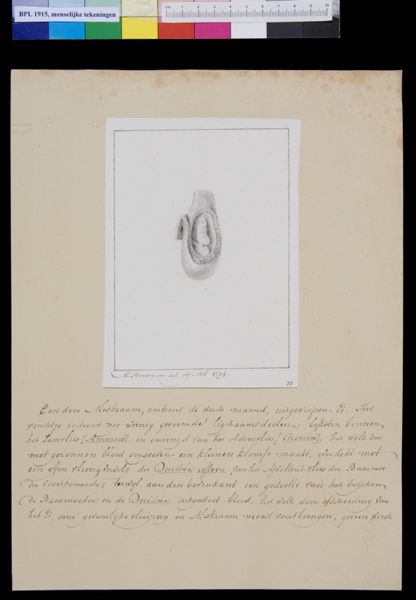 BPL 1915, menselijke tekeningen
ad viv. del. 1794.
23
Een door Miskraam, omtrent de derde maand, uitgeworpen Ei. Het
vruchtje vertoont nog weinig gevormde lighaamsdeelen; besloten binnen
het Lamsvlies (Amnion) en omringd van het Adervlies (Chorion), het welk door
met geronnen bloed omgeven een kleinen klomp maakt, overdekt met
een effen vliezig van de Decidua reflexa van het vlies der Baarmoe-
der voortkomende; terwijl aan den bovenkant een gedeelte van het
de Baarmoeder en de Decidua uitgestort bloed, het welk door afscheiding van
het Ei, deze gevaarlijke en Miskraam moest voortbrengen, gezien wordt